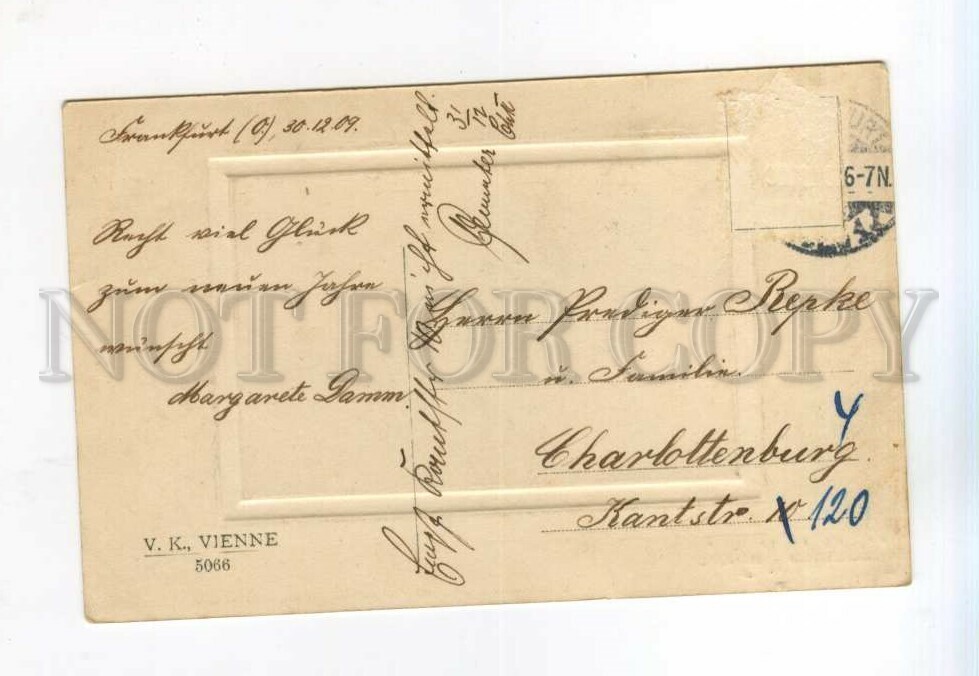 Frankfurt (O), 30.12.09.
Recht viel Glück
zum neuen Jahre
wünscht
Margarete Damm
V. K., VIENNE
5066
31/12
6-7N.
Herrn Prediger Repke
u. Familie.
Charlottenburg.
4
Kantstr. 10 120
NOT FOR COPY